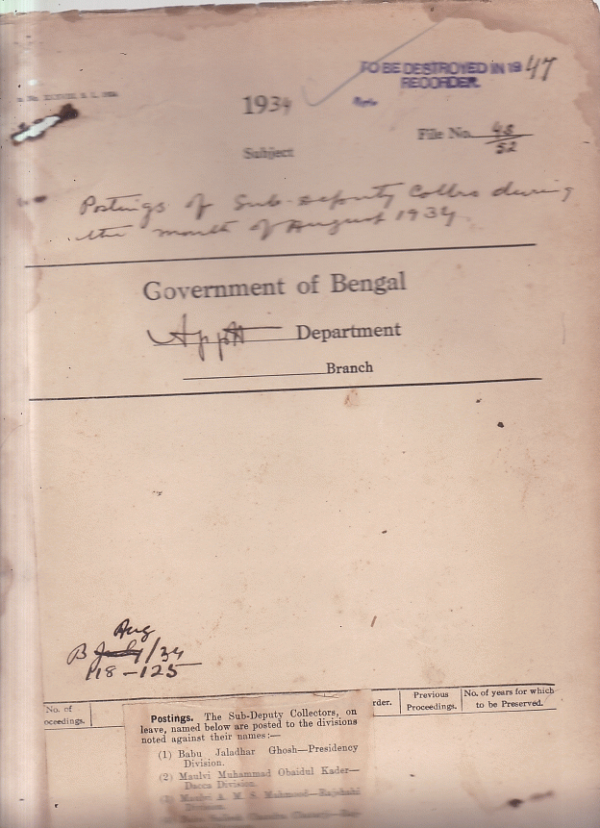 TO BE DESTROYED IN 1947
RECORDER.
1934
File No. 48/52
Subject
Postings of Sub-Deputy Collrs during
the month of August 1934.
Government of Bengal
Appt Department
Branch
Aug
B July/34
118-125
No. of
oceedings.
rder.
Previous
Proceedings.
No. of years for which
to be Preserved.
Postings. The Sub-Deputy Collectors, on
leave, named below are posted to the divisions
noted against their names:—
(1) Babu Jaladhar Ghosh—Presidency
Division.
(2) Maulvi Muhammad Obaidul Kader—
Dacca Division.
(3) Maulvi A. M. S. Mahmood—Rajshahi
Division.